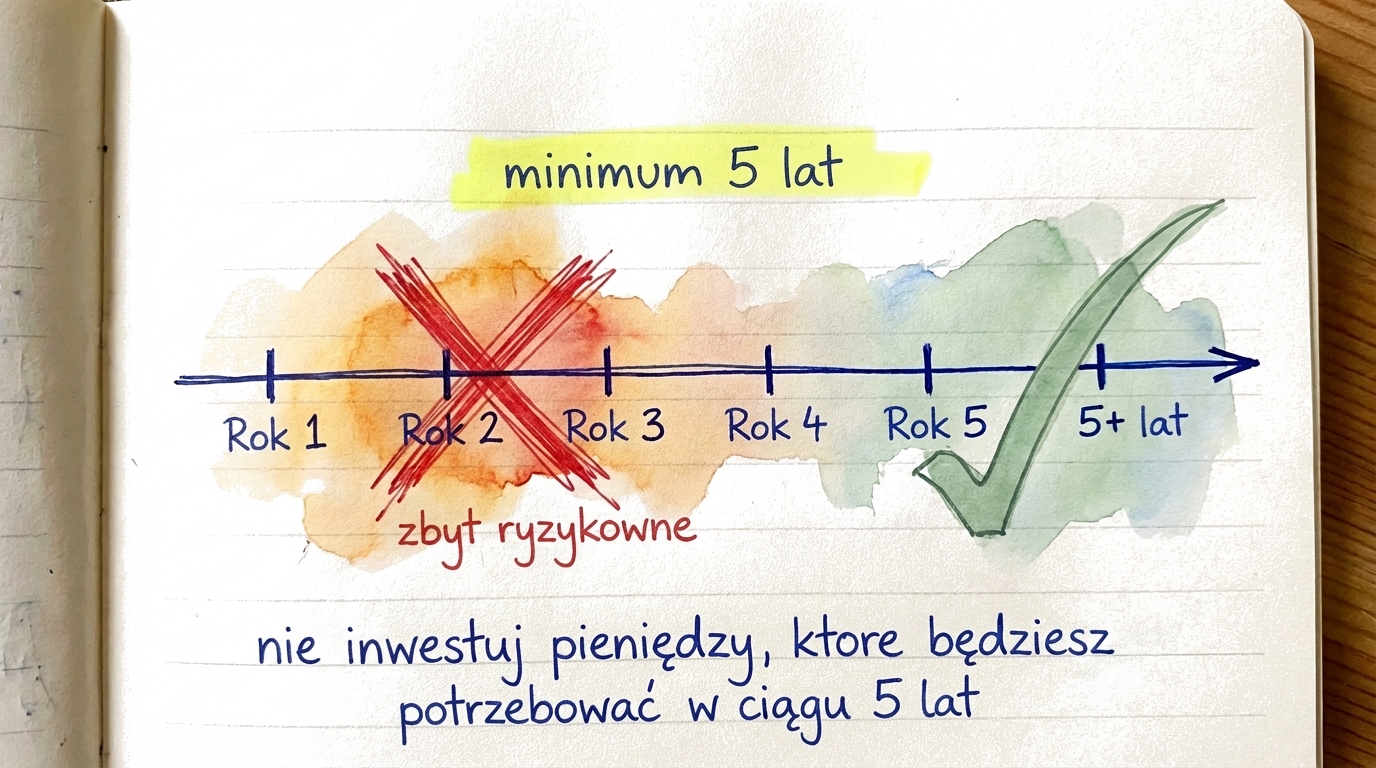 minimum 5 lat
Rok 1 Rok 2 Rok 3 Rok 4 Rok 5 5+ lat
zbyt ryzykowne
nie inwestuj pieniędzy, ktore będziesz
potrzebować w ciągu 5 lat